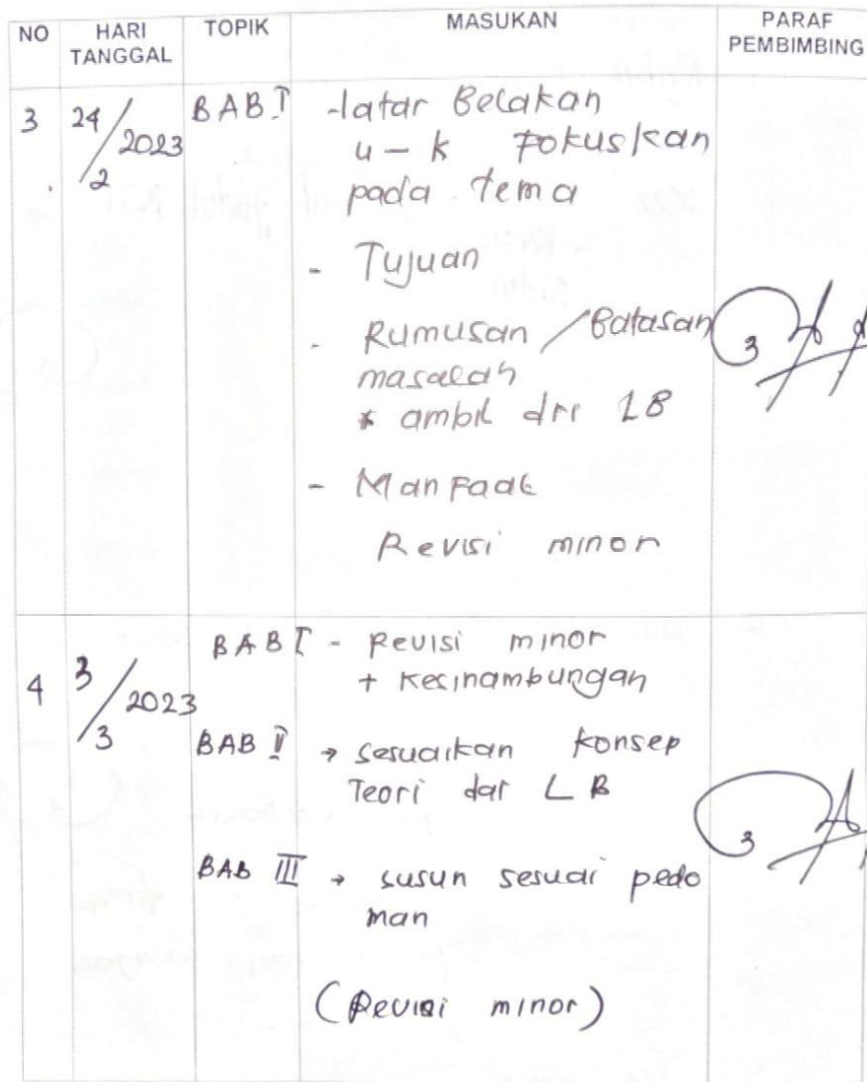 NO HARI TANGGAL TOPIK MASUKAN PARAF PEMBIMBING
3 24/2 2023 BAB I -latar Belakan
u - k Fokuskan
pada tema
- Tujuan
- Rumusan / Batasan
masalah
* ambil dri LB
- Manfaat
Revisi minor
4 3/3 2023 BAB I - Revisi minor
+ Kesinambungan
BAB II → sesuaikan konsep
Teori dar LB
BAB III → susun sesuai pedo
man
(Revisi minor)